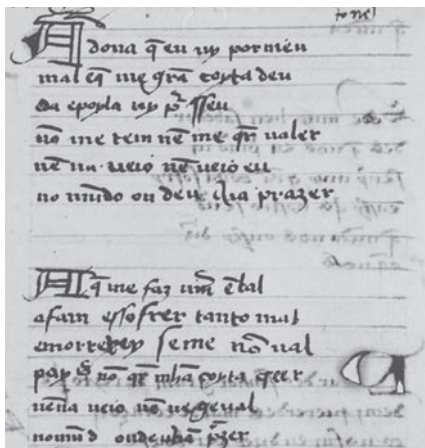 tornel
A dona q̃ eu uy por meu
mal eq̃ me grã coyta deu
Da epoyla uy pr̃ sseu
nõ me tem nẽ me qr̃ ualer
nẽ na ueio nẽ ueio eu
no mũdo ou deu prazer
A q̃ me faz uiu'̃ ẽ tal
afam essofrer tanto mal
emorrerey seme nõ ual
poys nõ qr̃ mha coyta creer
nẽna ueio nõ ueg eual
nomũd onde mha pr̃zer